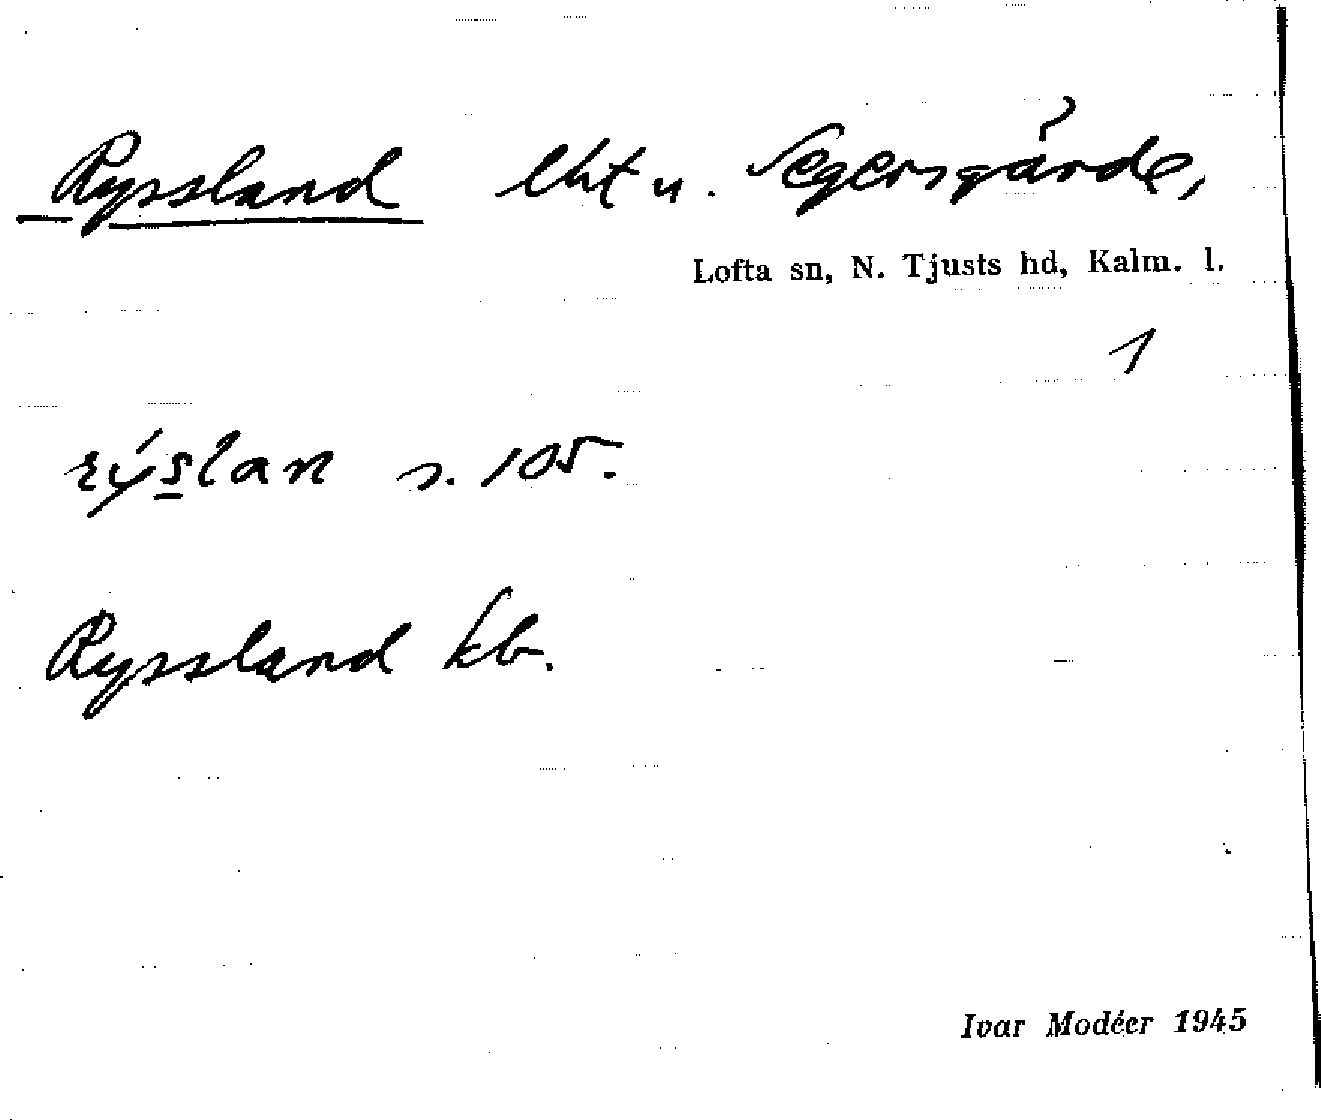 Ryssland lht u. Segersgärde,
Lofta sn, N. Tjusts hd, Kalm. l.
1
rýs̲lan s. 105.
Ryssland kb.
Ivar Modéer 1945